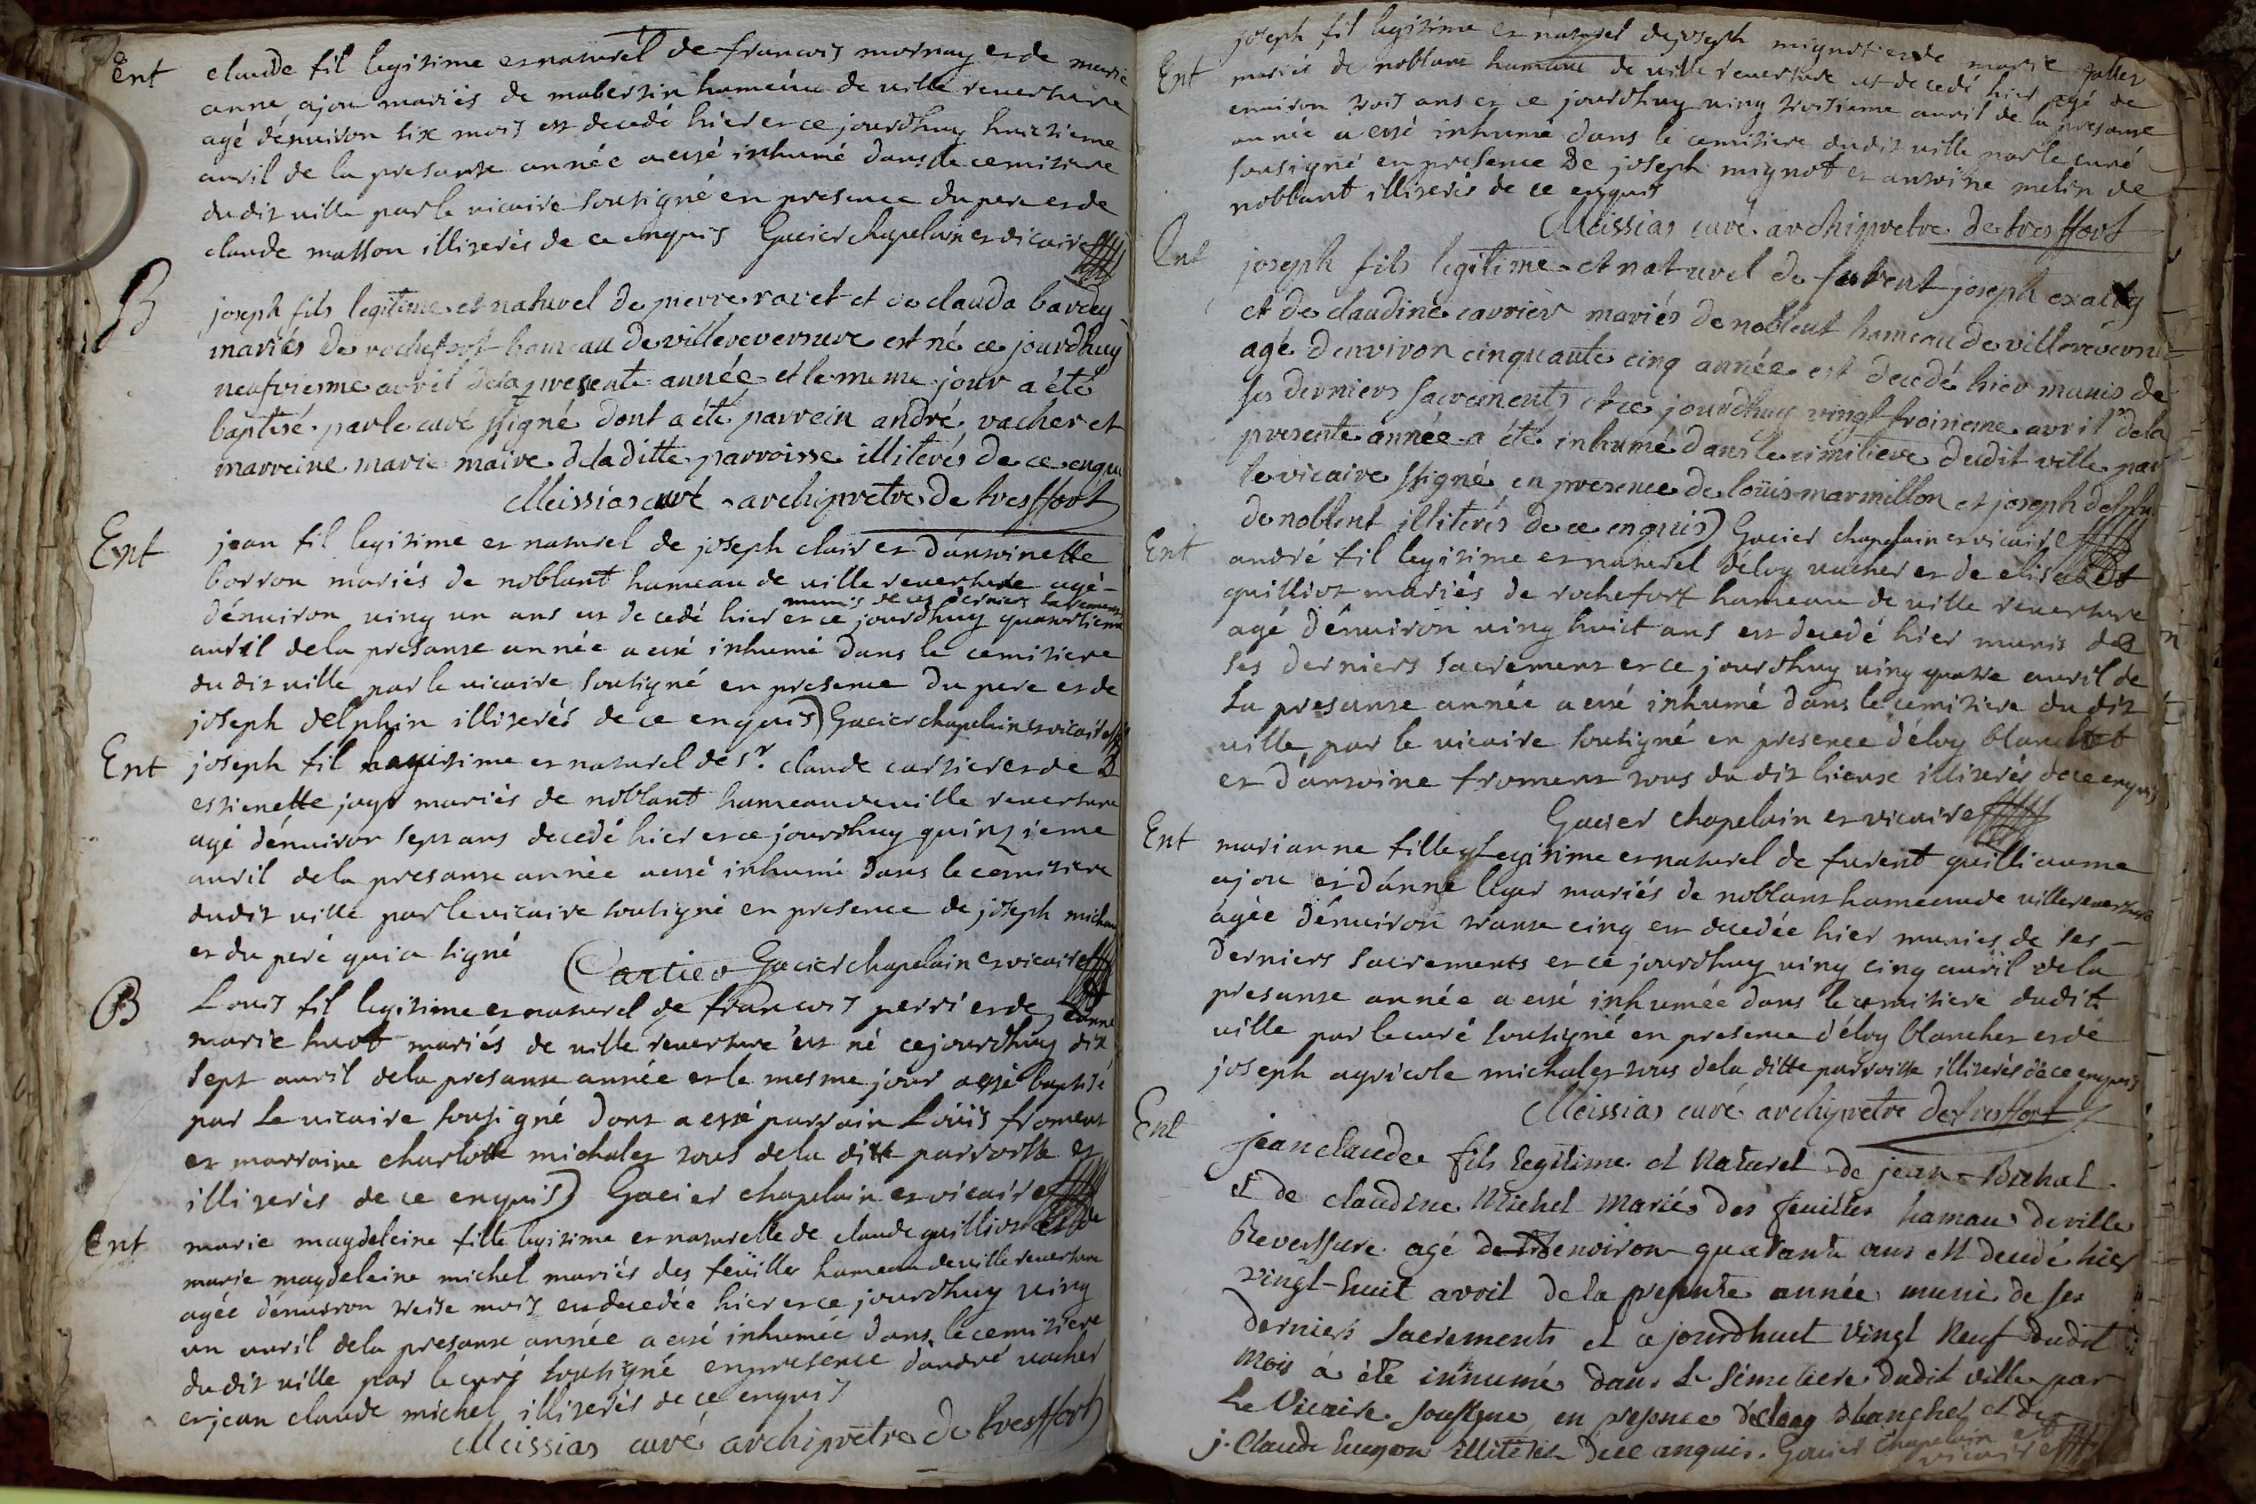 Ent claude fil legitime et naturel de francois mornay et de marie
anne ajou mariés de mabertin hameau de ville reversure
agé d'environ six mois est decedé hier et ce jourdhuy huictieme
avril de la presante année a etté inhumé dans le cemitiere
du dit ville par le vicaire soutigné en presence du pere et de
claude masson illiterés de ce enquis Gacier chapelain et vicaire
B joseph fils legitime et naturel de pierre ravet et de clauda bardey
mariés de rochefort hameau de villereversure est né ce jourdhuy
neufvieme avril de la presente année et le meme jour a été
baptisé par le curé ssigné dont a été parrein andré vacher et
marreine marie maire de la ditte parroisse illiterés de ce enqui
Meissias curé archipretre de tresffort
Ent jean fil legitime et naturel de joseph clair et d'antoinette
borron mariés de noblant hameau de ville reversure agé
munis de ces derniers sacrements
d'environ ving un ans est decedé hier et ce jourdhuy quatortieme
avril de la presante année a etté inhumé dans le cemitiere
du dit ville par le vicaire soutigné en presence du pere et de
joseph delphin illiterés de ce enquis) Gacier chapelain et vicaire
Ent joseph fil legitime et naturel de sr. claude cartier et de
estienette jayr mariés de noblant hameau de ville reversure
agé d'environ sept ans decedé hier et ce jourdhuy quinzieme
avril de la presante année a etté inhumé dans le cemitiere
du dit ville par le vicaire soutigné en presence de joseph michau
et du peré qui a signé Cartier Gacier chapelain et vicaire
B Louis fil legitime et naturel de francois perri et de janne
marie huot mariés de ville reversure est né cejourdhuy dix
sept avril de la presante année et le mesme jour a etté baptisé
par le vicaire sousigné dont a etté parrain Loüis froment
et marraine charlotte michalet tous de la ditte parroisse et
illiterés de ce enquis) Gacier chapelain et vicaire
Ent marie magdeleine fille legitime et naturelle de claude guilliot et de
marie magdeleine michel mariés des feüilles hameau de ville reversure
agée d'environ treise mois est decedée hier et ce jourdhuy ving
un avril de la presante année a etté inhumée dans le cemitiere
du dit ville par le curé soutigné en presence d'andré vacher
et jean claude michel illiterés de ce enquis
Meissias curé archipretre de tresffort
joseph fil legitime et naturel de joseph mignot et de marie
Ent mariés de noblant hameau de ville reversure est decedé hier agé de
environ trois ans et ce jourdhuy ving troisieme avril de la presante
année a etté inhumé dans le cemitiere du dit ville par le curé
sousigné en presence De joseph mignot et antoine melin de
noblant illiterés de ce enquis
Meissias curé archipretre de tresffort
Ent joseph fils legitime et naturel de furent joseph
et de claudine carrier mariés de noblent hameau de villereversu
agé denviron cinquante cinq année est decedé hier munis de
ses derniers sacrements et ce jourdhuy vingt troisieme avril de la
presente année a été inhumé dans le cimitiere dudit ville par
le vicaire ssigné en presence de loüis marmillon et joseph delphi
de noblent illiterés de ce enquis) Gacier chapelain et vicaire
Ent andré fil legitime et naturel d'éloy vacher et de elisabet
guilliot mariés de rochefort hameau de ville reversure
agé d'environ ving huict ans est decedé hier munis de
ses derniers sacrement et ce jourdhuy ving quatre avril de
La presante année a etté inhumé dans le cemitiere du dit
ville par le vicaire soutigné en presence d'éloy blanchet
et d'antoine froment tous du dit lieux illiterés de ce enquis
Gacier chapelain et vicaire
Ent marianne fille legitime et naturel de furent guilliaume
ajou et d'anne leger mariés de noblant hameau de ville reversure
agée d'environ trante cinq est decedée hier munies de ses
derniers sacrements et ce jourdhuy ving cinq avril de la
presante année a etté inhumée dans le cemitiere dudit
ville par le curé soutigné en presence d'éloy blanchet et de
joseph agricole michalet tous de la ditte parroisse illiterés de ce enquis
Meissias curé archipretre de tresffort
Ent jean claude fils legitime et Naturel de jean Buhat
et de claudine Michel Mariés des feuilles hamau de ville
Reverssure agé denviron quarante ans est decedé hier
vingt-huit avril de la presente année muni de ses
derniers sacrements et ce jourdhuit vingt Neuf dudit
Mois a été inhumé dans Le Simetiere dudit ville par
Le Vicaire soussigne en presence de blanchet et de
j. Claude illiteres de ce anquis. Gacier chapelain et
vicaire